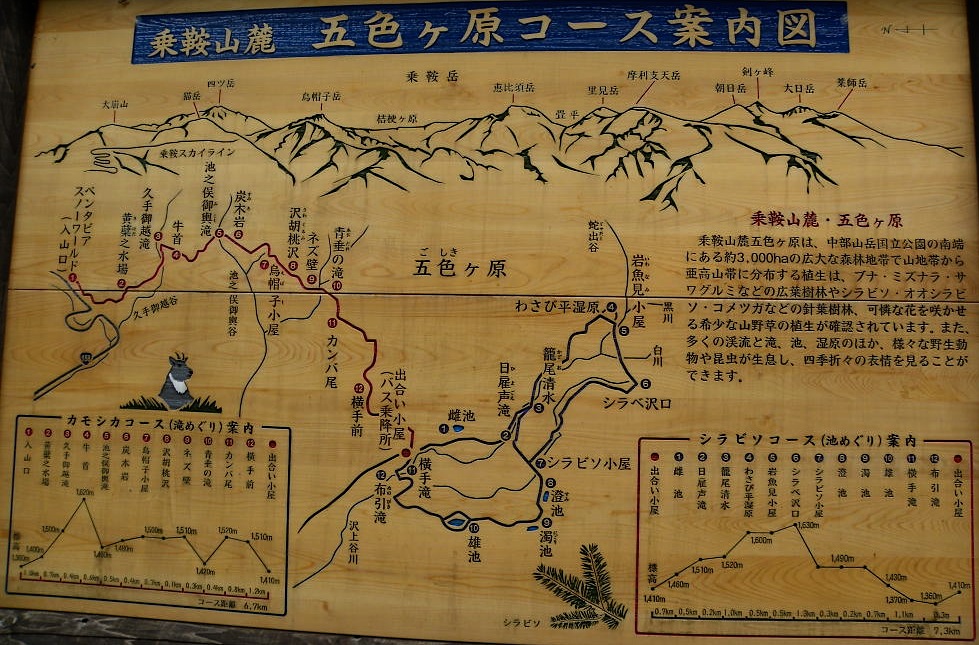 乗鞍山麓 五色ヶ原コース案内図
N
乗鞍岳
大崩山
猫岳
四ツ岳
烏帽子岳
桔梗ヶ原
恵比須岳
畳平
里見岳
摩利支天岳
朝日岳
剣ヶ峰
大日岳
薬師岳
乗鞍スカイライン
ベンタピア
スノーワールド
(入山口)
黄蘗之水場
久手御越滝
牛首
池之俣御輿滝
炭木岩
烏帽子小屋
沢胡桃沢
ネズ壁
青垂の滝
カンバ尾
横手前
出合い小屋
(バス乗降所)
久手御越谷
池之俣御輿谷
ごしき
五色ヶ原
蛇出谷
岩魚見小屋
わさび平湿原
黒川
白川
シラベ沢口
籠尾清水
日雇声滝
雌池
シラビソ小屋
澄池
濁池
雄池
横手滝
布引滝
沢上谷川
シラビソ
乗鞍山麓・五色ヶ原
乗鞍山麓五色ヶ原は、中部山岳国立公園の南端
にある約3,000haの広大な森林地帯で山地帯から
亜高山帯に分布する植生は、ブナ・ミズナラ・サ
ワグルミなどの広葉樹林やシラビソ・オオシラビ
ソ・コメツガなどの針葉樹林、可憐な花を咲かせ
る希少な山野草の植生が確認されています。また、
多くの渓流と滝、池、湿原のほか、様々な野生動
物や昆虫が生息し、四季折々の表情を見ることが
できます。
カモシカコース(滝めぐり)案内
1 入山口
2 黄蘗之水場
3 久手御越滝
4 牛首
5 池之俣御輿滝
6 炭木岩
7 烏帽子小屋
8 沢胡桃沢
9 ネズ壁
10 青垂の滝
11 カンバ尾
12 横手前
出合い小屋
標高
1,360m 1,400m 1,500m 1,620m 1,460m 1,480m 1,500m 1,510m 1,420m 1,520m 1,510m 1,410m
コース距離 6.7km
シラビソコース(池めぐり)案内
出合い小屋
1 雌池
2 日雇声滝
3 籠尾清水
4 わさび平湿原
5 岩魚見小屋
6 シラベ沢口
7 シラビソ小屋
8 澄池
9 濁池
10 雄池
11 横手滝
12 布引滝
出合い小屋
標高
1,410m 1,460m 1,510m 1,520m 1,600m 1,630m 1,490m 1,430m 1,370m 1,360m 1,410m
0.7km 0.5km 0.2km 1.0km 0.5km 0.5km 1.3km 0.3km 0.2km 0.7km 1.1km 0.3m
コース距離 7.3km